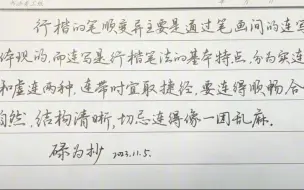 行楷的笔顺变异主要是通过笔画间的连写
体现的,而连写是行楷笔法的基本特点,分为实连
和虚连两种,连带时宜取捷径,要连得顺畅合
自然、结构清晰,切忌连得像一团乱麻。
碌为抄 2023.11.5.